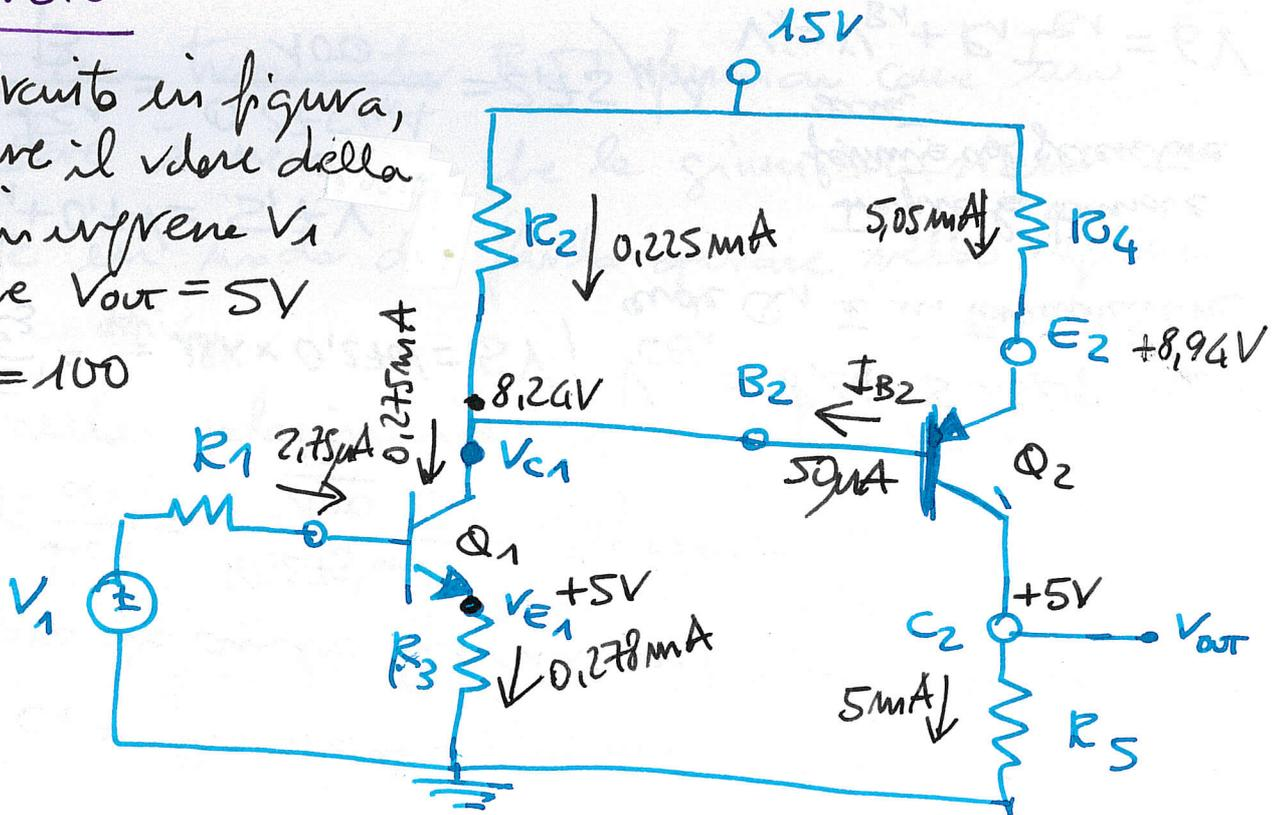 15V
rcuito in figura,
re il valore della
in ingresso V1
e VOUT = 5V
=100
R2
0,225mA
5,05mA
R4
E2 +8,94V
0,275mA
8,24V
B2
IB2
50μA
VC1
Q2
R1
2,75μA
Q1
V1
VE1 +5V
R3
0,278mA
+5V
C2
VOUT
5mA
R5